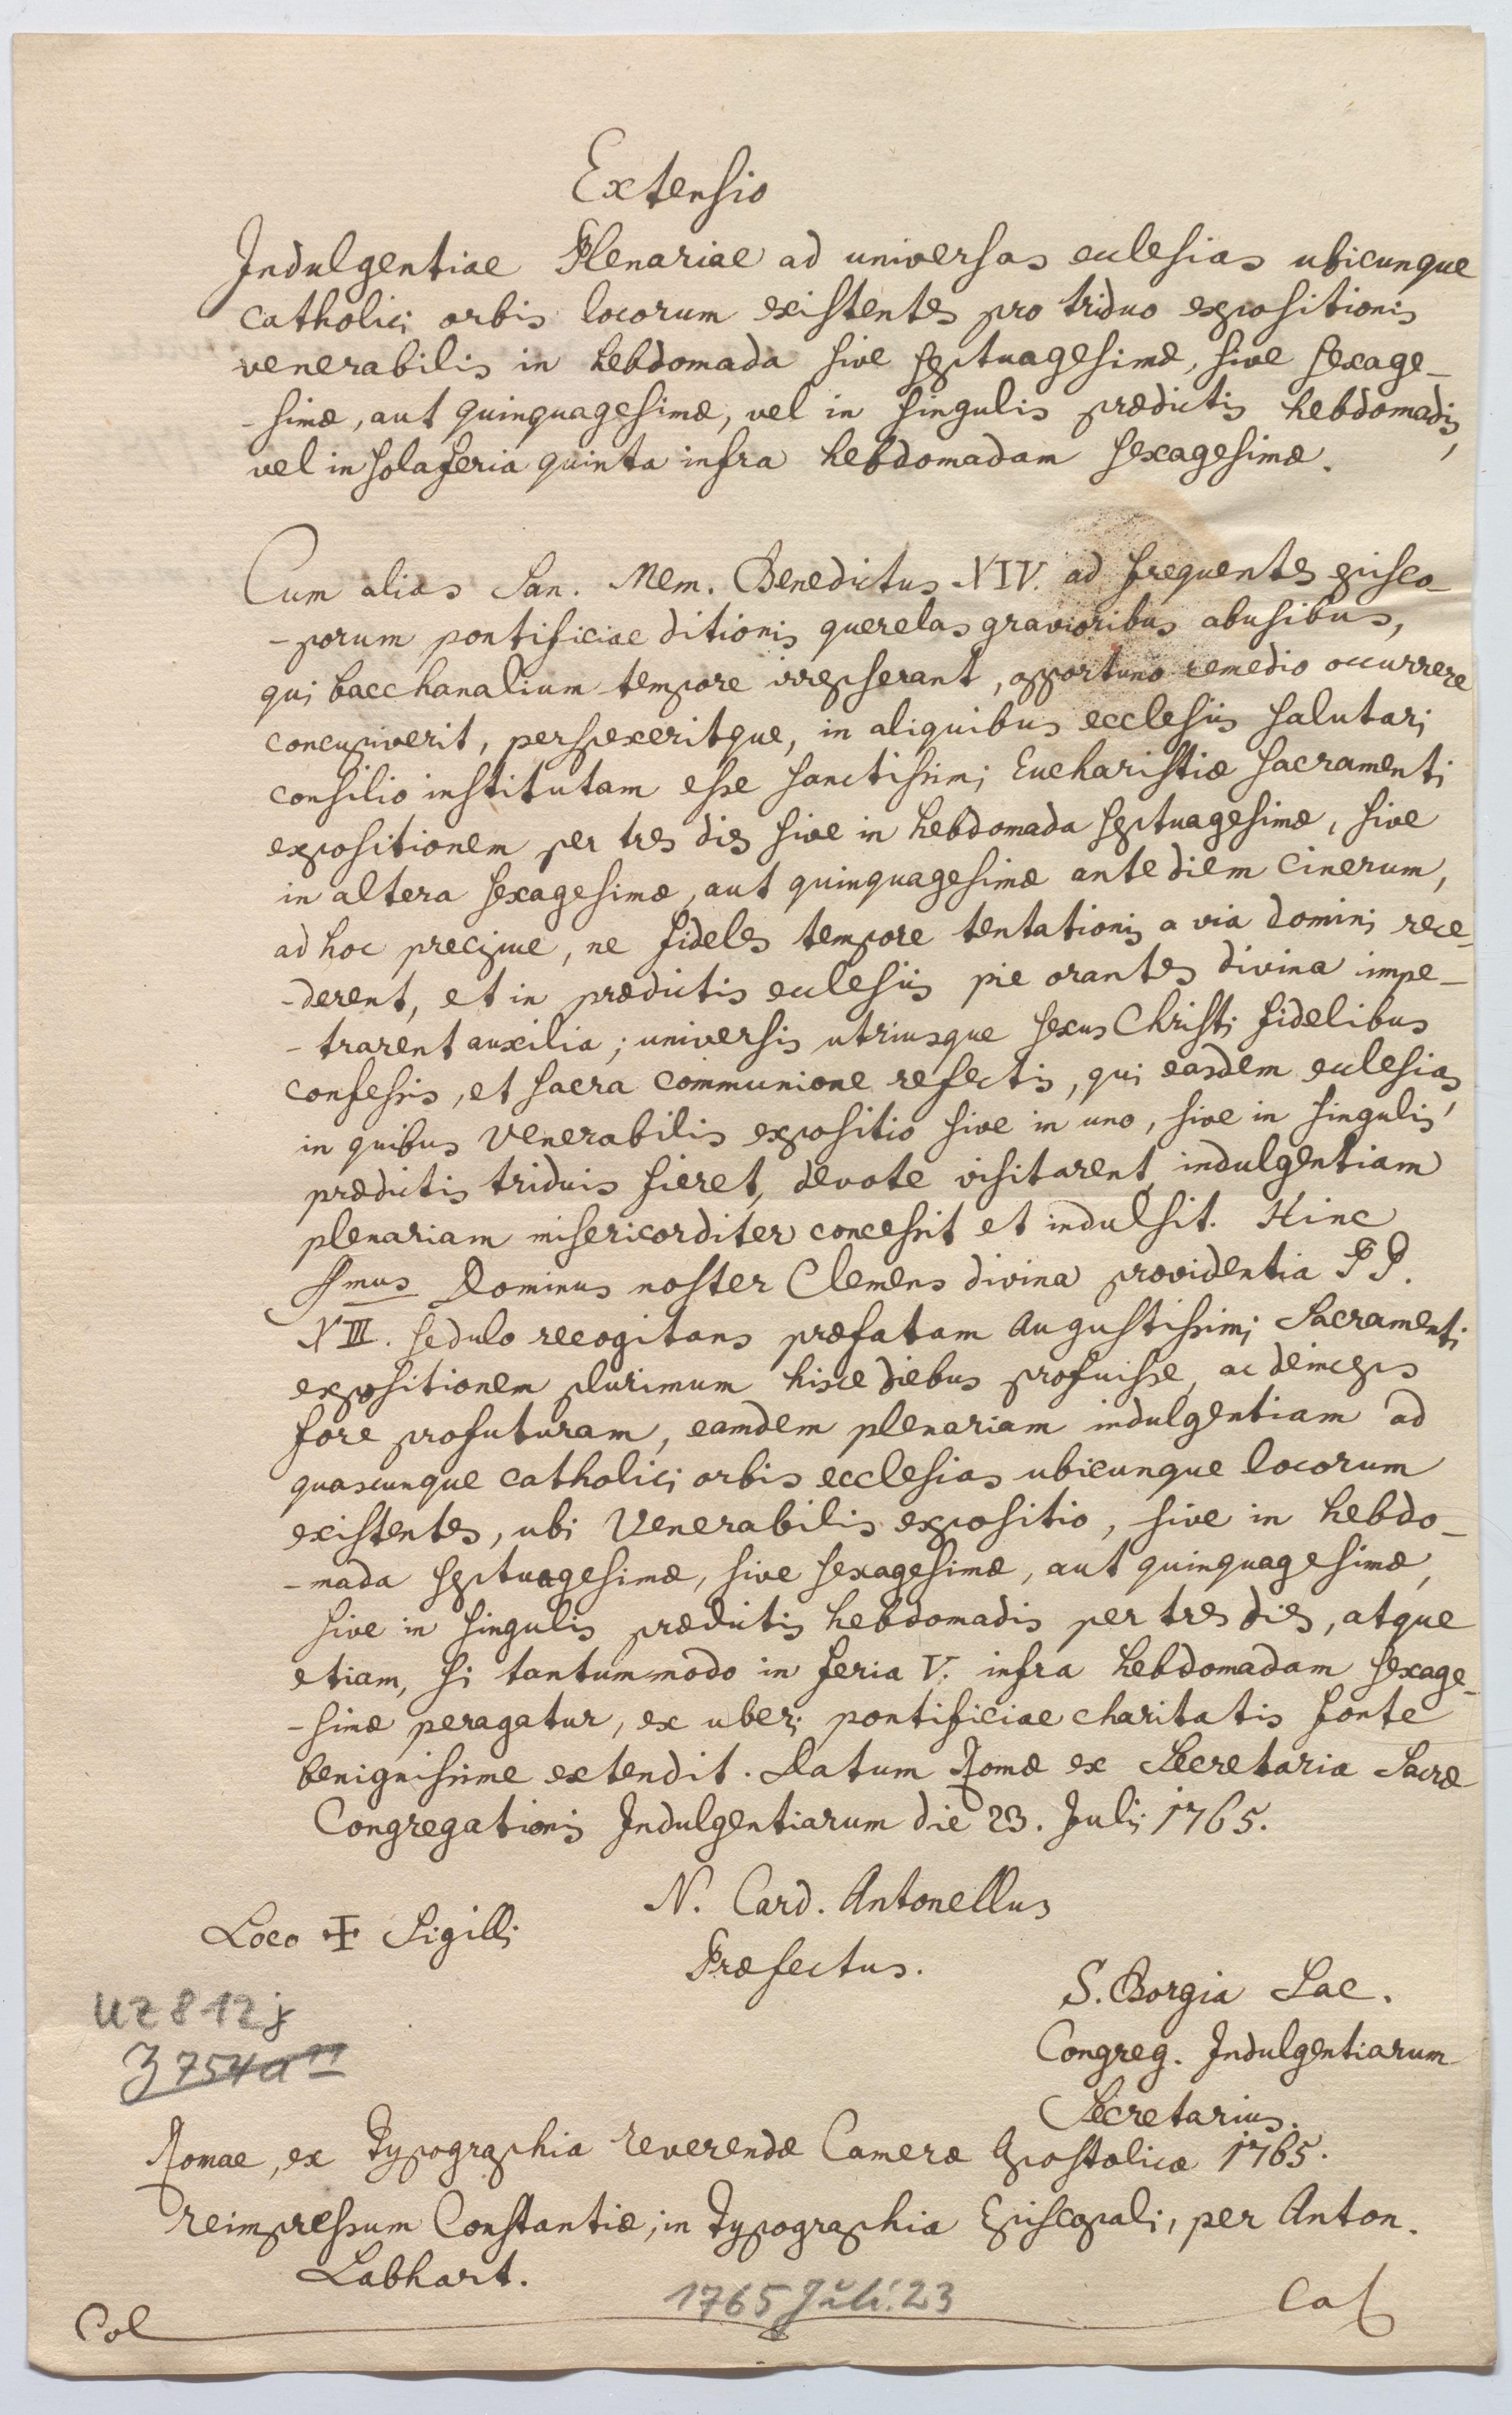 Extensio
Indulgentiae Plenariae ad universas ecclesias ubicunque
catholici orbis locorum existentes pro triduo expositionis
venerabilis in hebdomada sive septuagesimæ, sive sexage-
-simæ, aut quinquagesimæ, vel in singulis prædictis hebdomadis,
vel in sola feria quinta infra hebdomadam sexagesimæ.
Cum alias San. Mem. Benedictus XIV. ad frequentes episco-
-porum pontificiae ditionis querelas gravioribus abusibus,
qui bacchanalium tempore irrepserant, opportuno remedio occurrere
concupiverit, perspexeritque, in aliquibus ecclesiis salutari
consilio institutam esse sanctissimi Eucharistiæ sacramenti
expositionem per tres dies sive in hebdomada septuagesimæ, sive
in altera sexagesimæ, aut quinquagesimæ ante diem Cinerum,
ad hoc precipue, ne fideles tempore tentationis a via domini rece-
-derent, et in prædictis ecclesiis pie orantes divina impe-
-trarent auxilia; universis utriusque sexus Christi fidelibus
confessis, et sacra communione refectis, qui easdem ecclesias,
in quibus Venerabilis expositio sive in uno, sive in singulis
prædictis triduis fieret, devote visitarent, indulgentiam
plenariam misericorditer concessit et indulsit. Hinc
Ssmus Dominus noster Clemens divina providentia PP.
XIII. sedulo recogitans præfatam Augustissimi Sacramenti
expositionem plurimum hisce diebus profuisse, ac deinceps
fore profuturam, eamdem plenariam indulgentiam ad
quascunque catholici orbis ecclesias ubicunque locorum
existentes, ubi Venerabilis expositio, sive in hebdo-
-mada septuagesimæ, sive sexagesimæ, aut quinquagesimæ,
sive in singulis prædictis hebdomadis per tres dies, atque
etiam, si tantummodo in feria V. infra hebdomadam sexage-
-simæ peragatur, ex uberi pontificiae charitatis fonte
benignissime extendit. Datum Romæ ex Secretaria Sacræ
Congregationis Indulgentiarum die 23. Julij 1765.
N. Card. Antonellus
Loco ✠ Sigilli
Præfectus.
S. Borgia Sac.
UZ 812j
Congreg. Indulgentiarum
Z 754a11
Secretarius.
Romae, ex Typographia reverendæ Cameræ Apostolicæ 1765.
reimpressum Constantiæ, in Typographia Episcopali, per Anton.
Labhart.
1765 Juli 23
Col